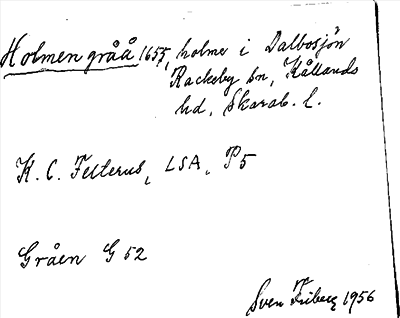 Holmen gråå 1655, holme i Dalbosjön
Rackeby sn, Kållands
hd, Skarab. l.
K. C. Felterus, LSA, P5
Gråen G 52
Sven Friberg 1956